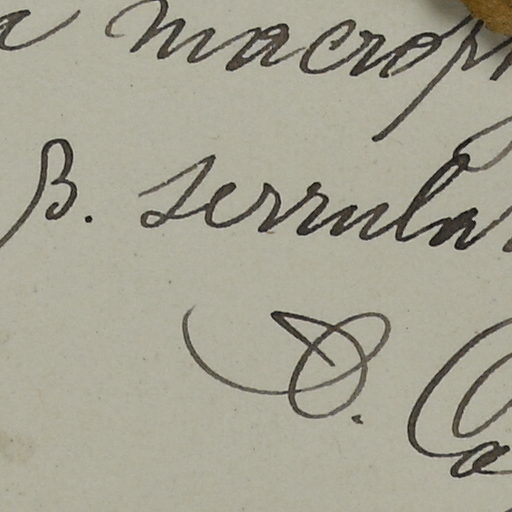 a macrop
β. serrula
D. Ca